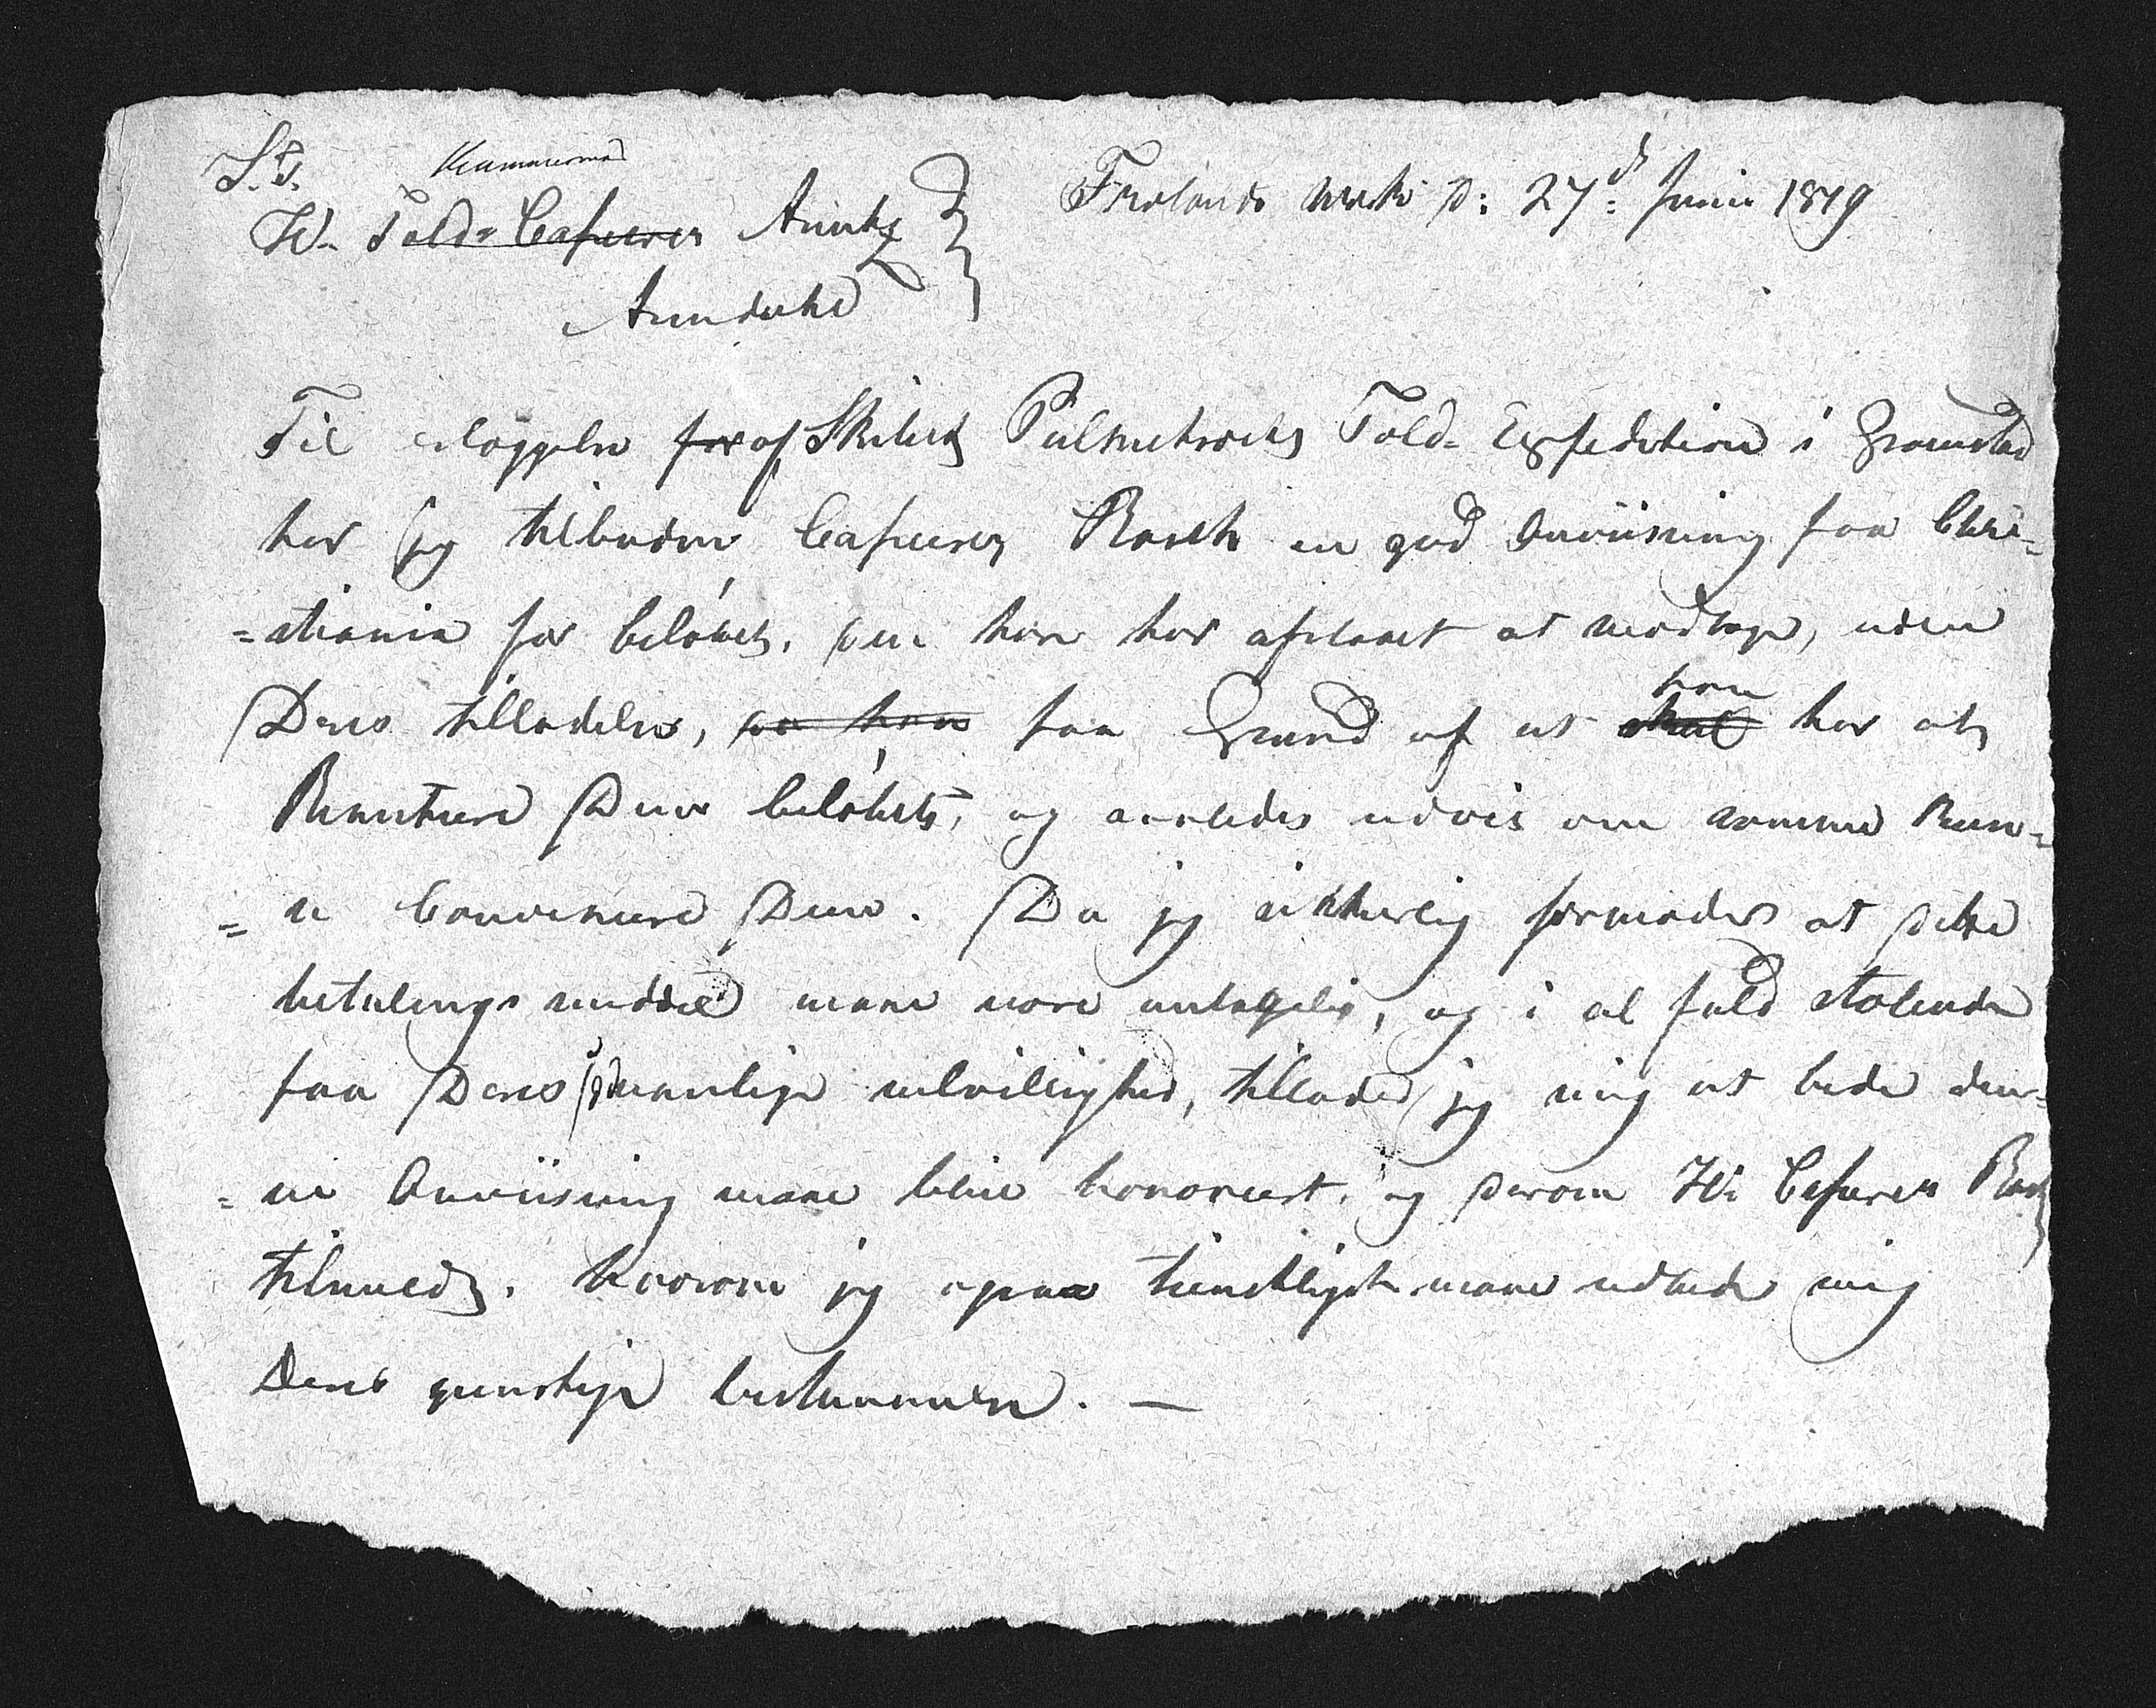 S. T.
Kammerraad
Hr. Told-Casserer Aimtz
Arendahl
Frolands Værk D: 27de Junii 1819
Til erlæggelse for af Skibets Told-Expedition i Grimstad
har jeg tilbuden Casserer Bosch en god Anviisning paa Chri-
-stiania for beløbet, som han har afslaaet at modtage, uden
Deres tilladelse, paa Grund af at skal han har at
Remitere Dem beløbet, og saaledes uvis om samme kun-
=de Convenere Dem. Da jeg sikkerlig formoder at dette
betalings middel maae være antagelig, og i al fald stolende
paa Deres sædvanlige velvillighed, tillader jeg mig at bede den-
=ne Anviisning maae blive honoreret, og derom Hr. Casserer
tilmeldt. Hvorom jeg ogsaa tienstligst maae udbede mig
Deres gunstige bestemmelse. —